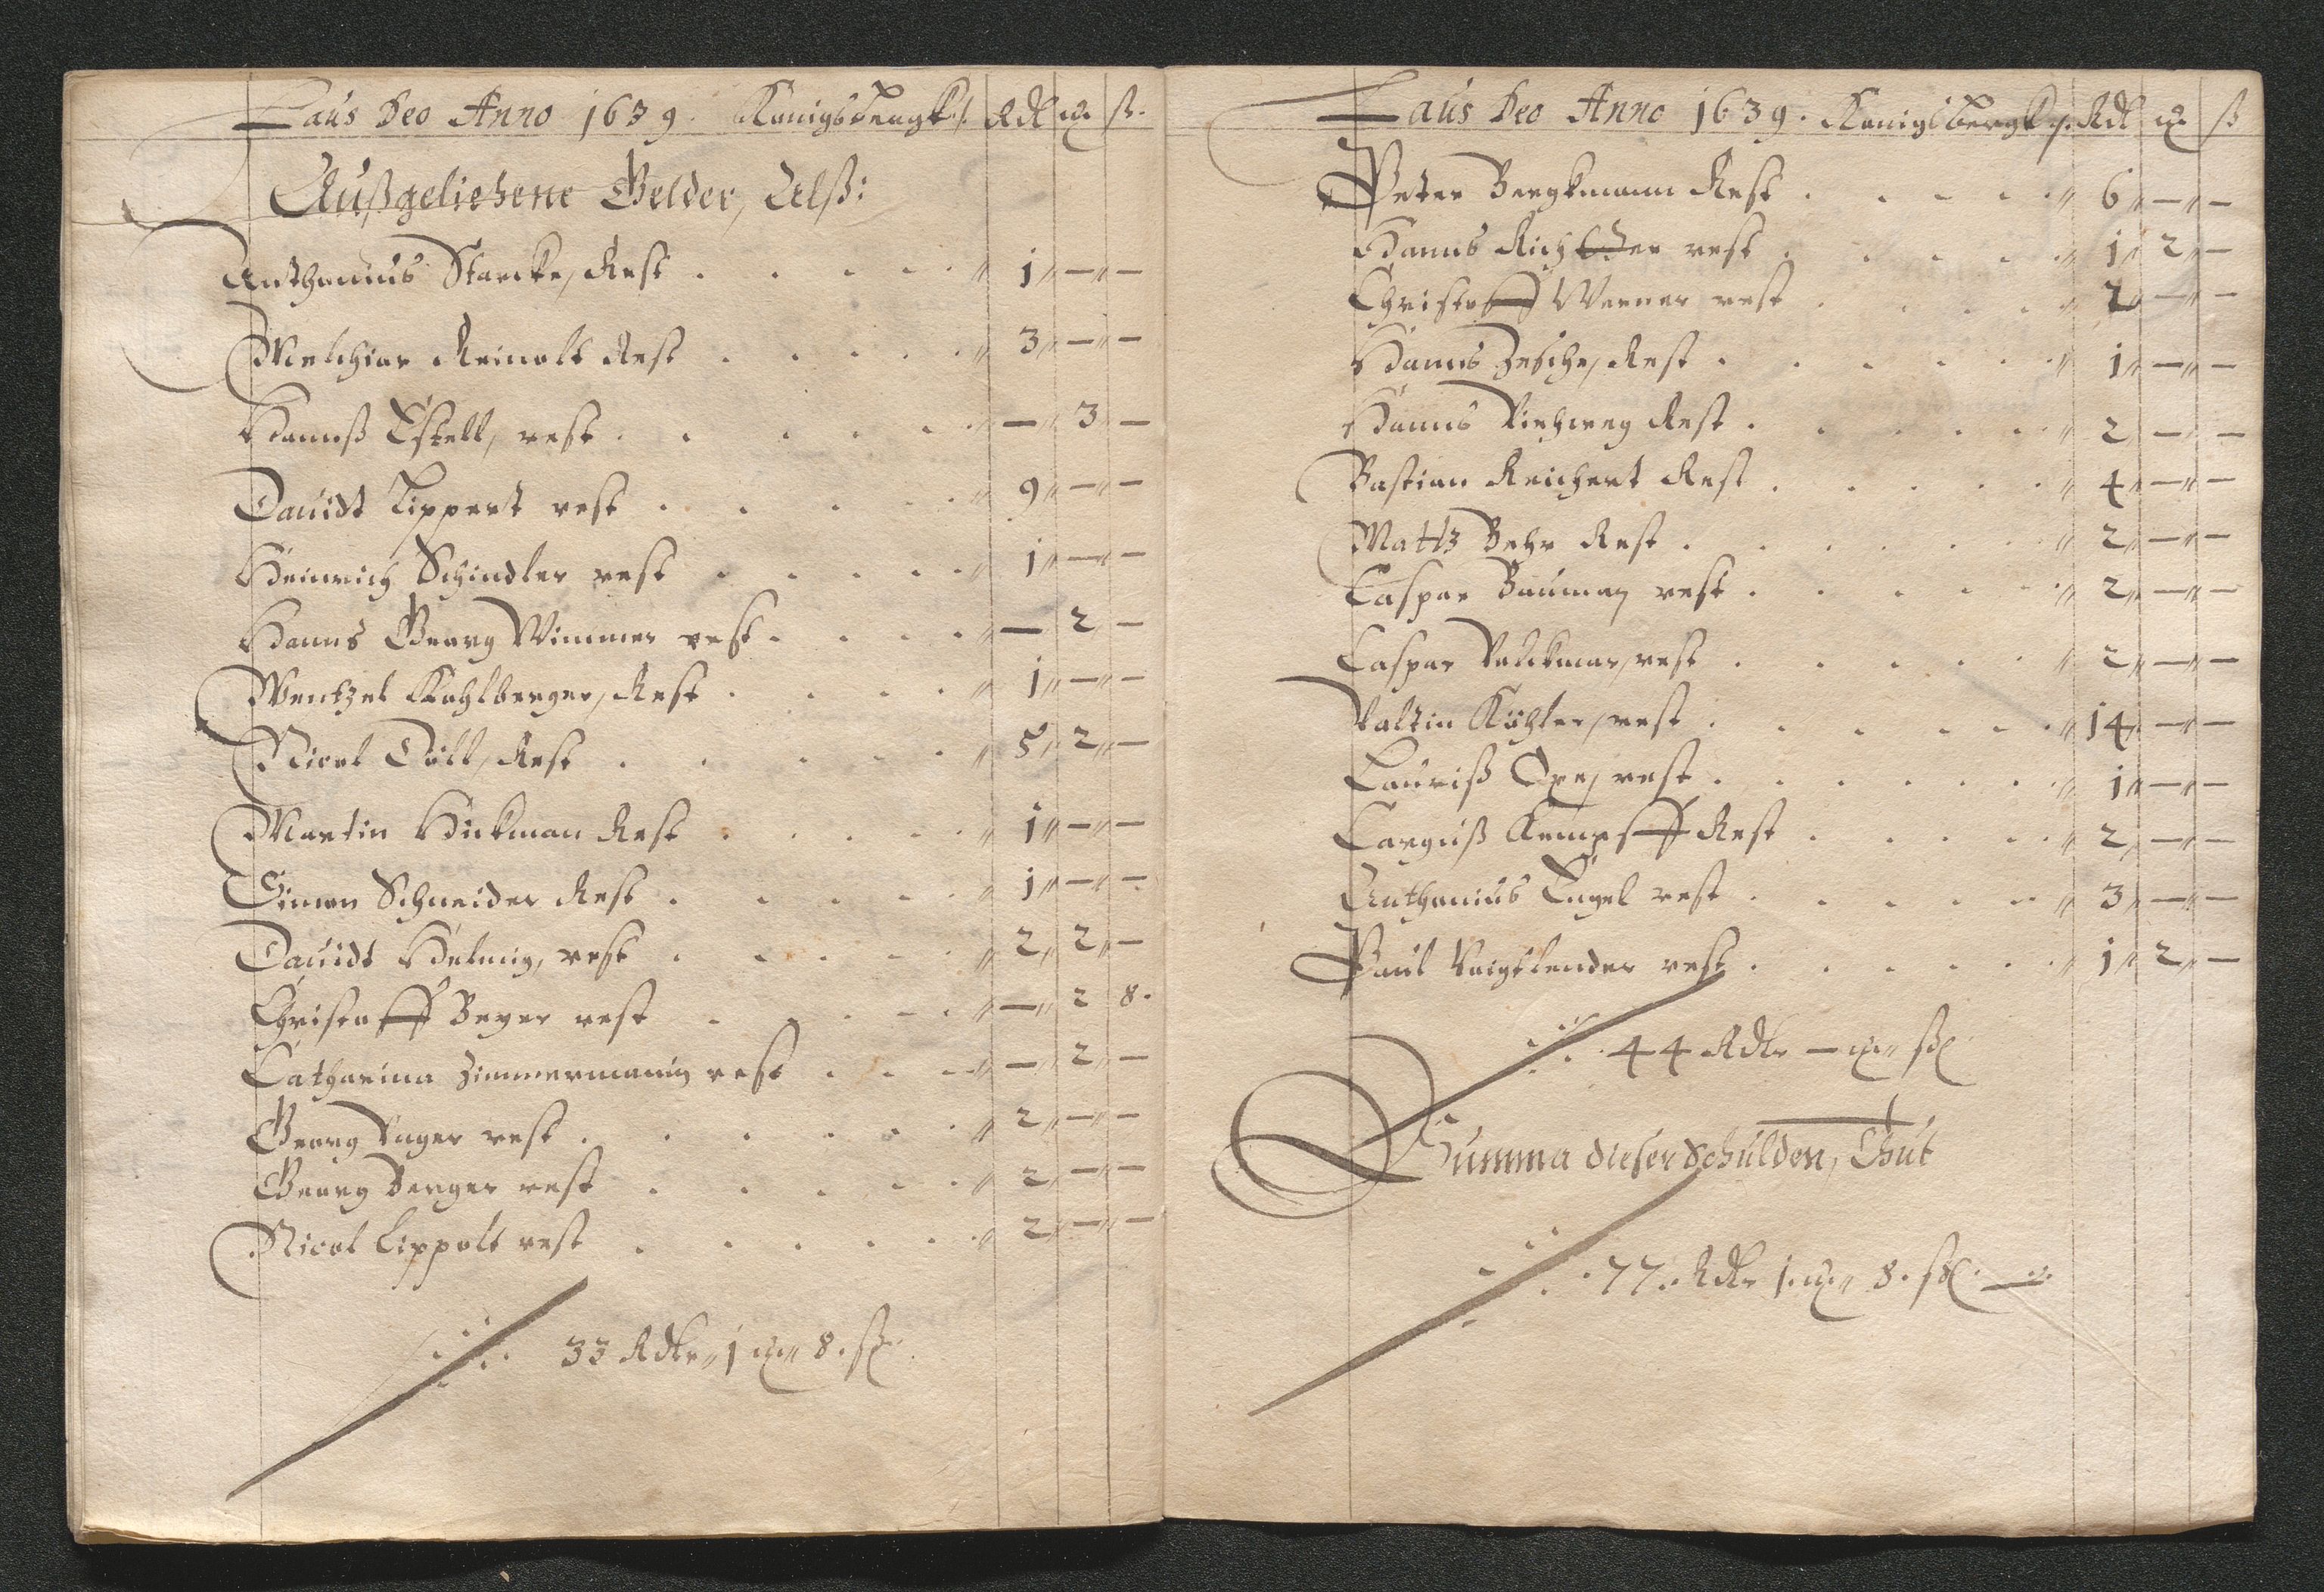 Laus Deo Anno 1639. Königsbergk. Rdl ß.
Außgeliehene Gelder, Alß:
Anthonius Starcke, Rest . . . . . " 1 " — " —
Melchior Reinolt Rest . . . . . " 3 " — " —
Hannß Estell, rest . . . . . " — " 3 —
Dauidt Lippert rest . . . . . " 9 " — " —
Heinrich Schindler rest . . . . . " 1 " — " —
Hanns Georg Wimmer rest . . . . " — 2 " —
Wentzel Kohlberger, Rest . . . . " 1 " — " —
Nicol Döll, Rest . . . . . " 5 " 2 " —
Martin Hickman Rest . . . . . " 1 " — " —
Simon Schneider Rest . . . . . " 1 " — " —
Dauidt Helmig, rest . . . . . " 2 " 2 " —
Christoff Beyer rest . . . . . " — " 2 8.
Catharina Zimmermanin rest . . . " — " 2 " —
Georg Unger rest . . . . . " 2 " — " —
Georg Berger rest . . . . . " 2 " — " —
Nicol Lippolt rest . . . . . " 2 " — " —
33 Rdlr " 1 " 8. ß
Laus Deo Anno 1639. Königsbergk. Rdl ß
Peter Bergkmann Rest . . . . " 6 " — " —
Hanns Richter rest . . . . . " 1 " 2 " —
Christoff Werner rest . . . . " 2 " — " —
Hanns Zesche, Rest . . . . . " 1 " — " —
Hanns Viehweg Rest . . . . . " 2 " — " —
Bastian Reichert Rest . . . . . " 4 " — " —
Mattz Behr Rest . . . . . " 2 " — " —
Caspar Bauman rest . . . . . " 2 " — " —
Caspar Volckmar, rest . . . . . " 2 " — " —
Valtin Köhler, rest . . . . . " 14 " — " —
Lauriß Oxe, rest . . . . . " 1 " — " —
Kempff Rest . . . . . " 2 " — " —
Anthonius Engel rest . . . . . " 3 " — " —
Paul Voigtlender rest . . . . . " 1 " 2 " —
44 Rdlr — " ß
Summa dieser Schulden, Thut
77. Rdlr 1. " 8. ß